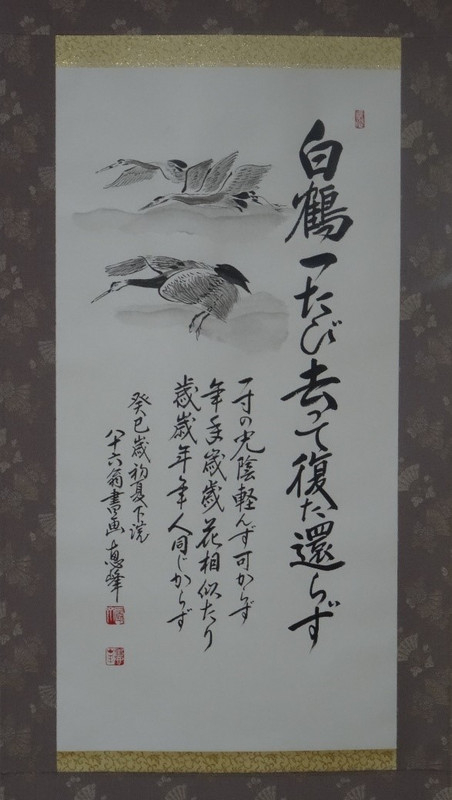 白鶴一たび去って復た還らず
一寸の光陰軽んず可からず
年年歳歳花相似たり
歳歳年年人同じからず
癸巳歳初夏下浣
八十六翁書画恵峰